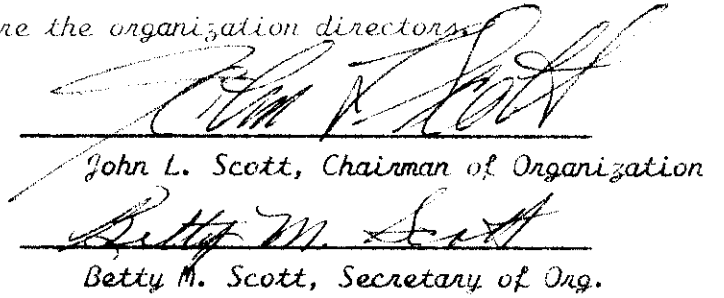 re the organization directors.
John L. Scott
John L. Scott, Chairman of Organization
Betty M. Scott
Betty M. Scott, Secretary of Org.